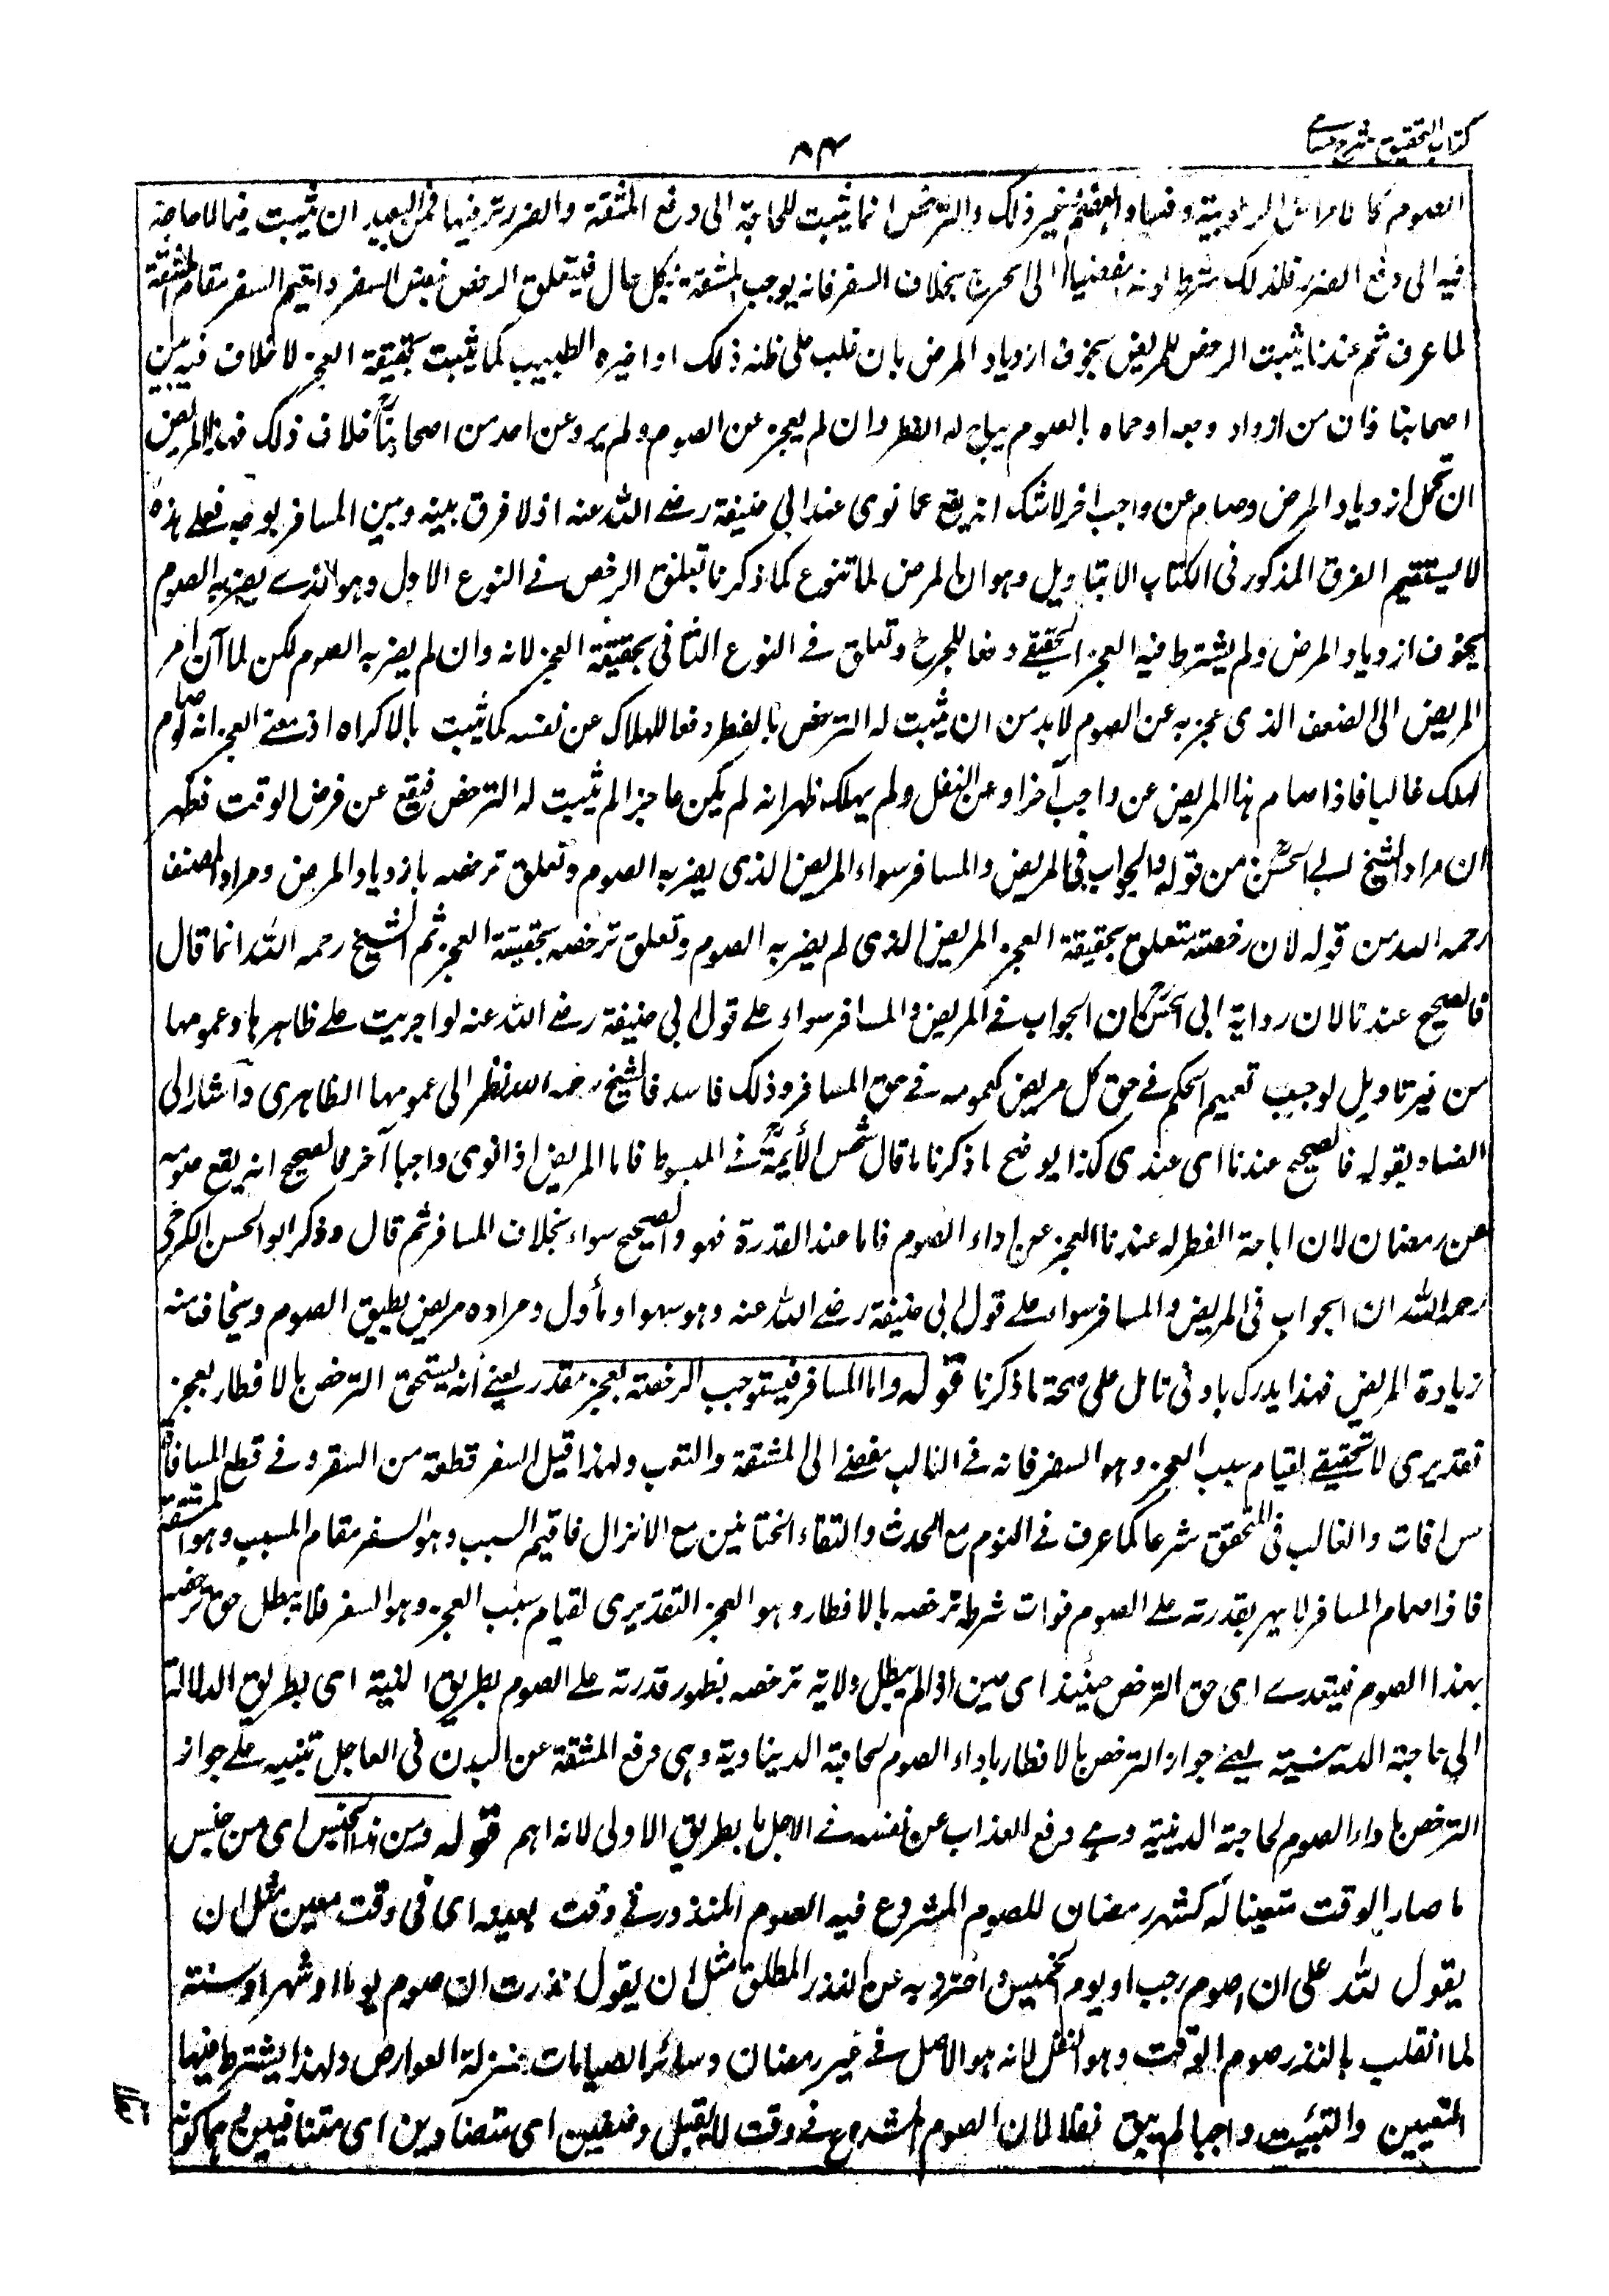 كتاب التحقيق شرح حسامي
٨٣
الصوم كالامراض الرطوبية وفساد الهضم وغير ذلك والترخص انما يثبت للحاجة الى دفع المشقة والضرر ترفيها فمن البعيد ان يثبت فيما لا حاجة
فيه الى دفع الضرر فلذلك شرط كونه مفضيا الى الحرج بخلاف السفر فانه يوجب المشقة بكل حال فيتعلق الرخص بنفس السفر واقيم السفر مقام المشقة
لما عرف ثم عندنا يثبت الرخص للمريض بخوف ازدياد المرض بان غلب على ظنه ذلك او اخبره الطبيب كما يثبت بحقيقة العجز لا خلاف فيه بين
اصحابنا فان من ازداد وجعه او حماه بالصوم يباح له الفطر وان لم يعجز عن الصوم ولم يرو عن احد من اصحابنا خلاف ذلك فهذا المريض
ان تحمل ازدياد المرض وصام عن واجب اخر لا شك انه يقع عما نوى عند ابي حنيفة رضے الله عنه اذ لا فرق بينه وبين المسافر بوجه فعلے هذه
لا يستقيم الفرق المذكور فى الكتاب الا بتاويل وهو ان المرض لما تنوع كما ذكرنا تعلق الرخص فے النوع الاول وهو الذے يضر به الصوم
بخوف ازدياد المرض ولم يشترط فيه العجز الحقيقے دفعا للحرج وتعلق فے النوع الثانى بحقيقة العجز لانه وان لم يضر به الصوم لكن لما آن امر
المريض الى الضعف الذى عجز به عن الصوم لا بد من ان يثبت له الترخص بالفطر دفعا للهلاك عن نفسه كما يثبت بالاكراه اذ معنے العجز انه لو صام
لهلك غالبا فاذا صام هذا المريض عن واجب آخر او عن النفل ولم يهلك ظهر انه لم يكن عاجزا لم يثبت له الترخص فيقع عن فرض الوقت فظهر
ان مراد الشيخ ابے الحسن من قوله والجواب فى المريض والمسافر سواء المريض الذى يضر به الصوم وتعلق ترخصه بازدياد المرض ومراد المصنف
رحمه الله من قوله لان رخصته متعلق بحقيقة العجز المريض الذى لم يضر به الصوم وتعلق ترخصه بحقيقة العجز ثم الشيخ رحمه الله انما قال
فالصحيح عندنا لان رواية ابى الحسن ان الجواب فے المريض والمسافر سواء علے قول ابي حنيفة رضے الله عنه لو اجريت علے ظاهرها وعمومها
من غير تاويل لوجب تعميم الحكم فے حق كل مريض كعمومه فے حق المسافر وذلك فاسد فالشيخ رحمه الله نظر الى عمومها الظاهرى وآشار الى
الفساد بقوله فالصحيح عندنا اى عندى كذا يوضح ما ذكرنا ما قال شمس الأيمة فے المبسوط فاما المريض اذا نوى واجبا آخر فالصحيح انه يقع صومه
عن رمضان لان اباحة الفطر له عندنا العجز عن اداء الصوم فاما عند القدرة فهو والصحيح سواء بخلاف المسافر ثم قال وذكر ابو الحسن الكرخى
رحمه الله ان الجواب فى المريض والمسافر سواء علے قول ابي حنيفة رضے الله عنه وهو سهو او مأول ومراده مريض يطيق الصوم ويخاف منه
زيادة المريض فهذا يدرك بادنى تامل على صحة ما ذكرنا قوله واما المسافر فيستوجب الرخصة بعجز مقدر يعنے أنه يستحق الترخص بالافطار بعجز
تقديرى لا تحقيقے لقيام سبب العجز وهو السفر فانه فے الغالب مفضے الى المشقة والتعب ولهذا قيل السفر قطعة من السقر وفے قطع المسافة
مس آفات والغالب فى المتحقق شرعا كما عرف فے النوم مع الحدث والتقاء الختانين مع الانزال فاقيم السبب وهو السفر مقام المسبب وهو المشقة
فاذا صام المسافر لا يهر بقدرته علے الصوم فوات شرط ترخصه بالافطار وهو العجز التقديرى لقيام سبب العجز وهو السفر فلا يبطل حق ترخصه
بهذا الصوم فيتعدے اى حق الترخص حينئذ اى حين اذ لم يبطل ولاية ترخصه بظهور قدرته علے الصوم بطريق التنبيه اى بطريق الدلالة
الى حاجته الدينية يعنے جواز الترخص بالافطار باداء الصوم لحاجة الدنياوية وهى دفع المشقة عن البدن فى العاجل تنبيه علے جواز
الترخص باداء الصوم لحاجته الدينية وهے دفع العذاب عن نفسه فے الاجل بالطريق الاولى لانه اهم قوله ومن هذا الجنس اى من جنس
ما صار الوقت متعينا له كشهر رمضان للصوم المشروع فيه الصوم المنذور فے وقت بعينه اى فى وقت معين مثل ان
يقول لله على ان اصوم رجب او يوم الخميس واحترز به عن النذر المطلق مثل ان يقول نذرت ان صوم يوما او شهرا او سنة
لما انقلب بالنذر صوم الوقت وهو النفل لانه هو الاصل فے غير رمضان وسائر الصيامات بمنزلة العوارض ولهذا يشترط فيها
التعيين والتبئيت واجبا لم يبق نفلا لان الصوم المشروع فے وقت لا يقبل وصفين اى متضادين اى متنافيين حكما كونه